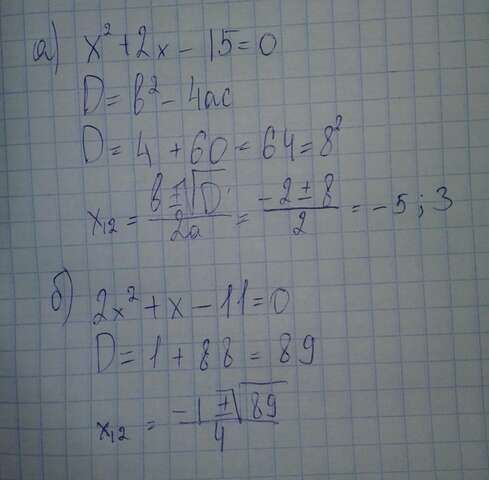 а) x² + 2x - 15 = 0
D = b² - 4ac
D = 4 + 60 = 64 = 8²
x₁₂ = (b ± √D)/2a = (-2 ± 8)/2 = -5; 3
б) 2x² + x - 11 = 0
D = 1 + 88 = 89
x₁₂ = (-1 ± √89)/4